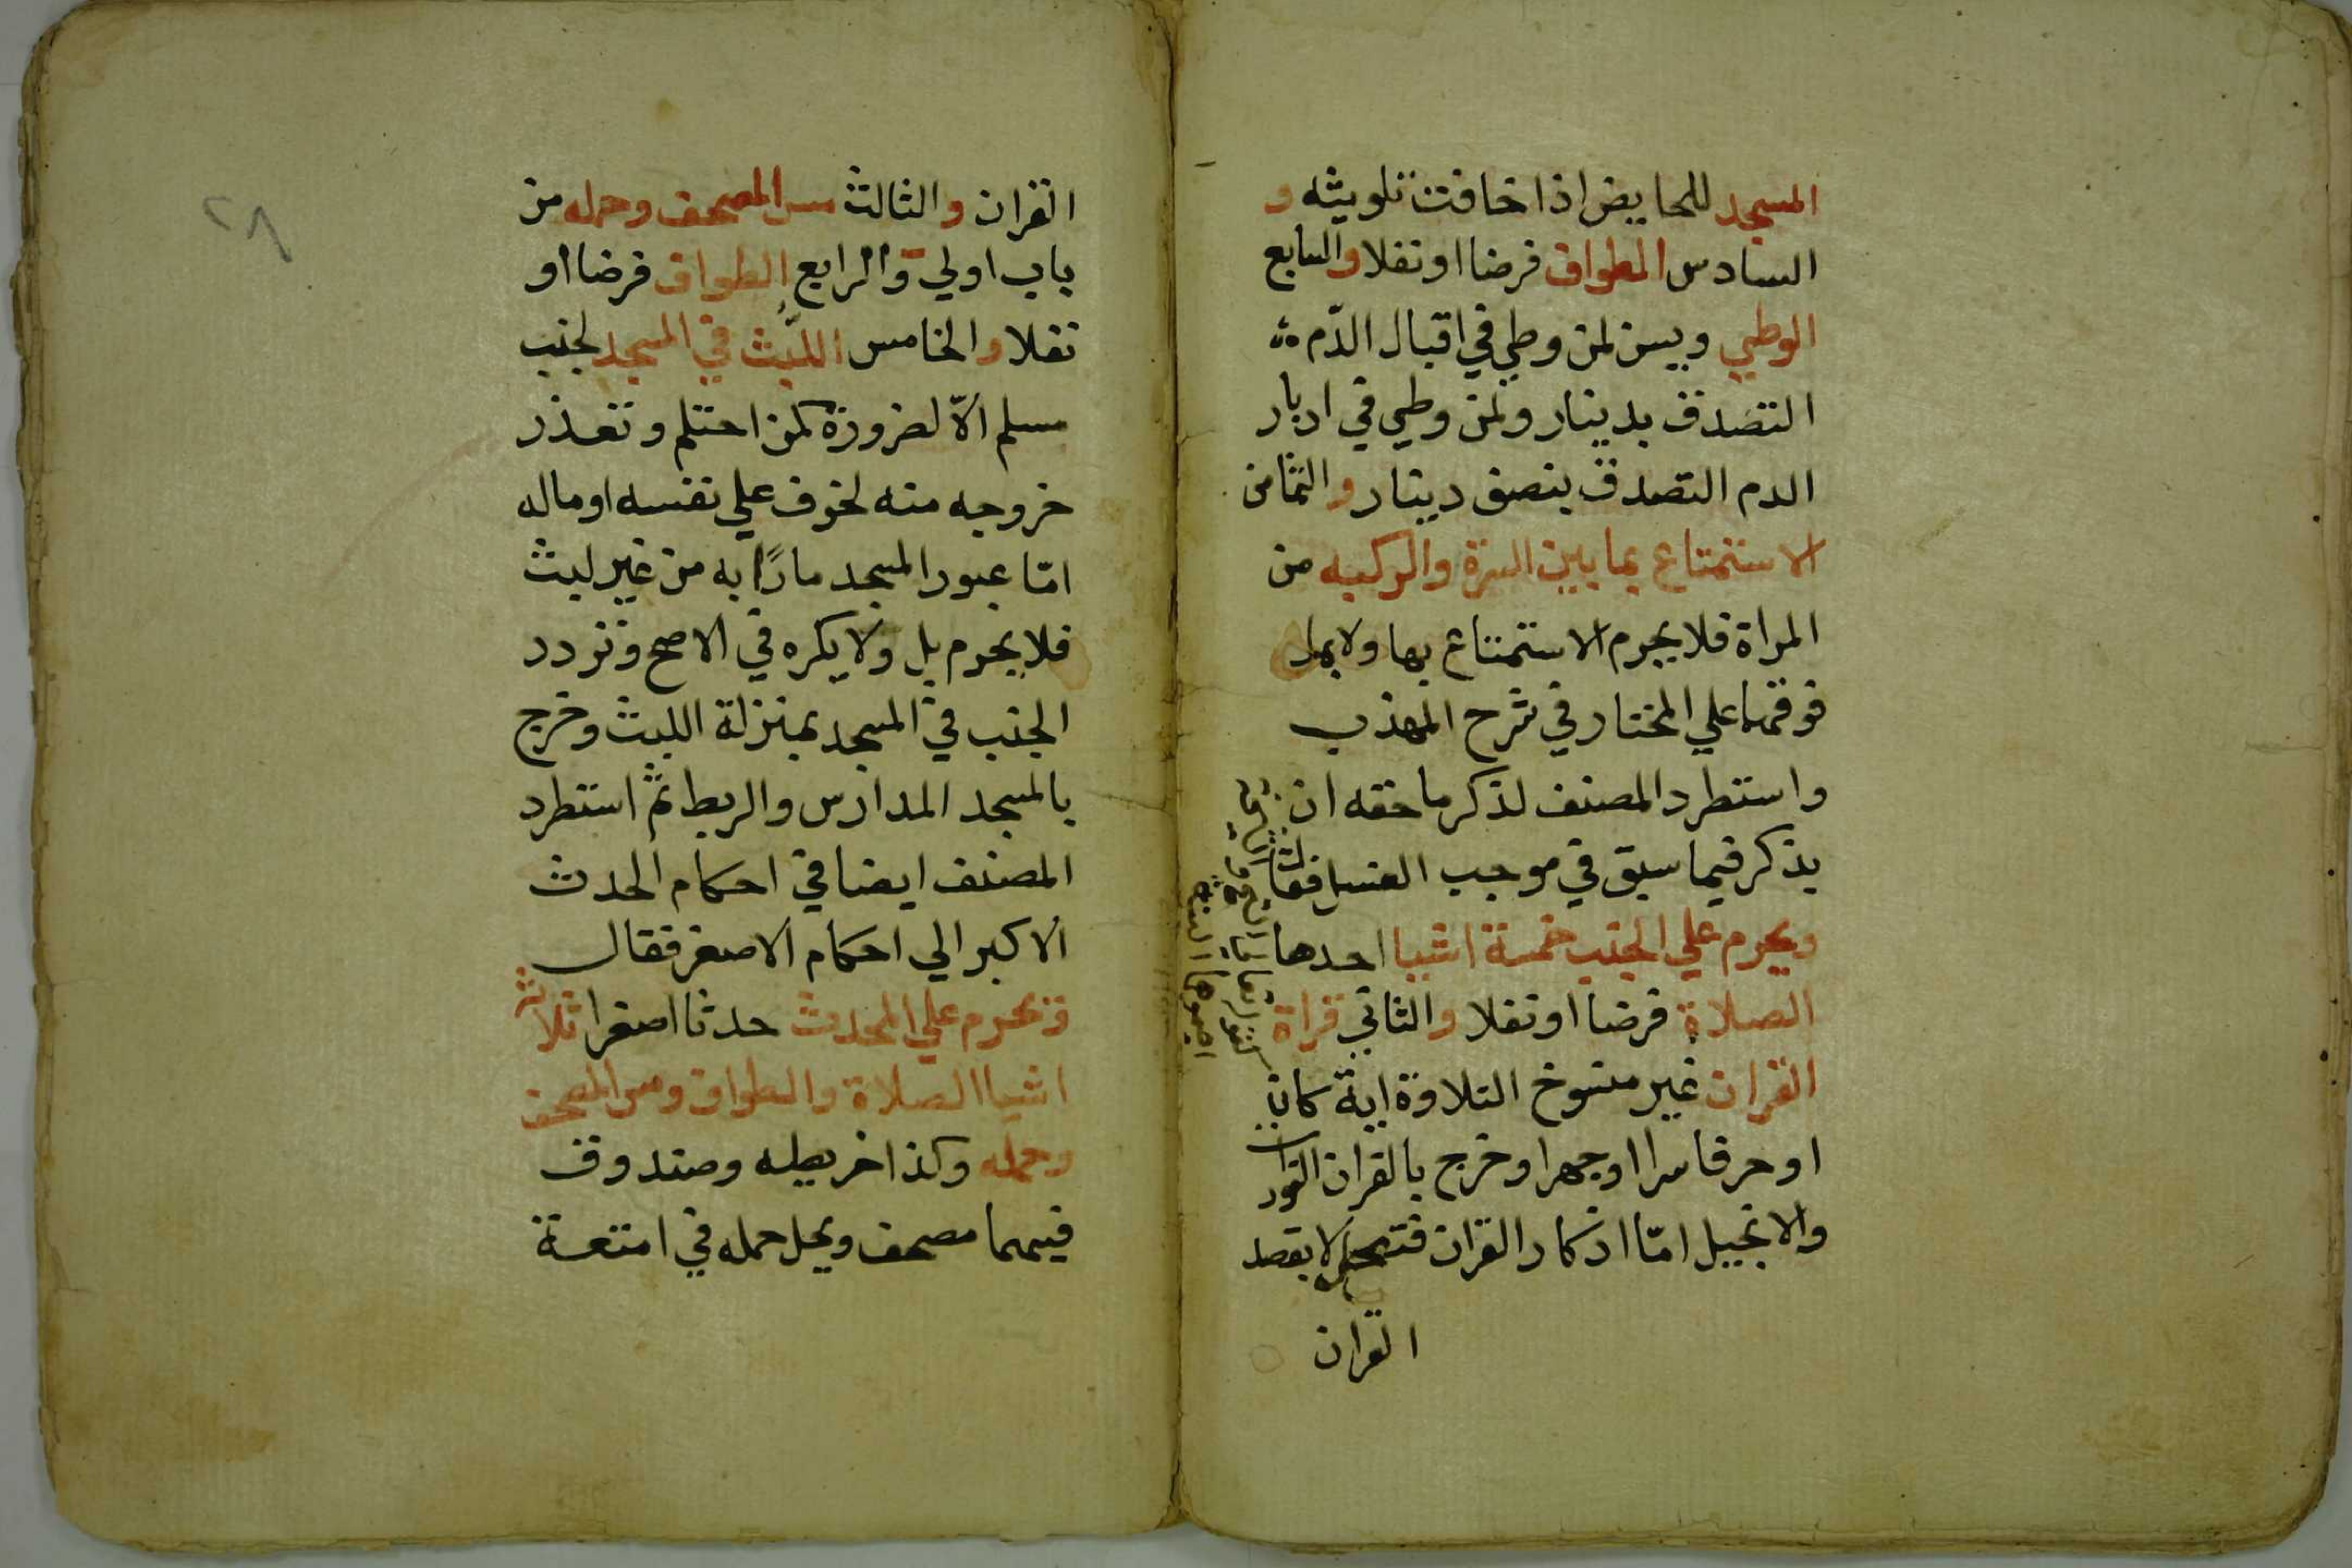 المسجد للحايض اذا خافت تلويثه و
السادس الطواف فرضا او نفلا والسابع
الوطي ويسن لمن وطي في اقبال الدّم
التصدق بدينار ولمن وطي في ادبار
الدم التصدق بنصف دينار والثامن
الاستمتاع بما بين السرة والركبه من
المراة فلا يحرم الاستمتاع بها ولا بما
فوقهما علي المختار في شرح المهذب
واستطرد المصنف لذكر ما حقه ان
يذكر فيما سبق في موجب الغسل فقال
ويحرم علي الجنب خمسة اشيا احدها
الصلاة فرضا او نفلا والثاني قراة
القران غير منسوخ التلاوة اية كان
او حرفا سرا او جهرا وخرج بالقران التورات
والانجيل امّا اذكار القران فتحل لا بقصد
القران
القران والثالث مس المصحف وحمله من
باب اولي والرابع الطواف فرضا او
نفلا والخامس اللّبث في المسجد لجنب
مسلم الاّ لضرورة كمن احتلم وتعذر
خروجه منه لخوف علي نفسه او ماله
امّا عبور المسجد مارًا به من غير لبث
فلا يحرم بل ولا يكره في الاصح وتردد
الجنب في المسجد بمنزلة اللبث وخرج
بالمسجد المدارس والربط ثم استطرد
المصنف ايضا في احكام الحدث
الاكبر الي احكام الاصغر فقال
ويحرم علي المحدث حدثا اصغرا ثلاثة
اشيا الصلاة والطواف ومس المصحف
وحمله وكذا خريطه وصندوق
فيهما مصحف ويحل حمله في امتعة
٢٨